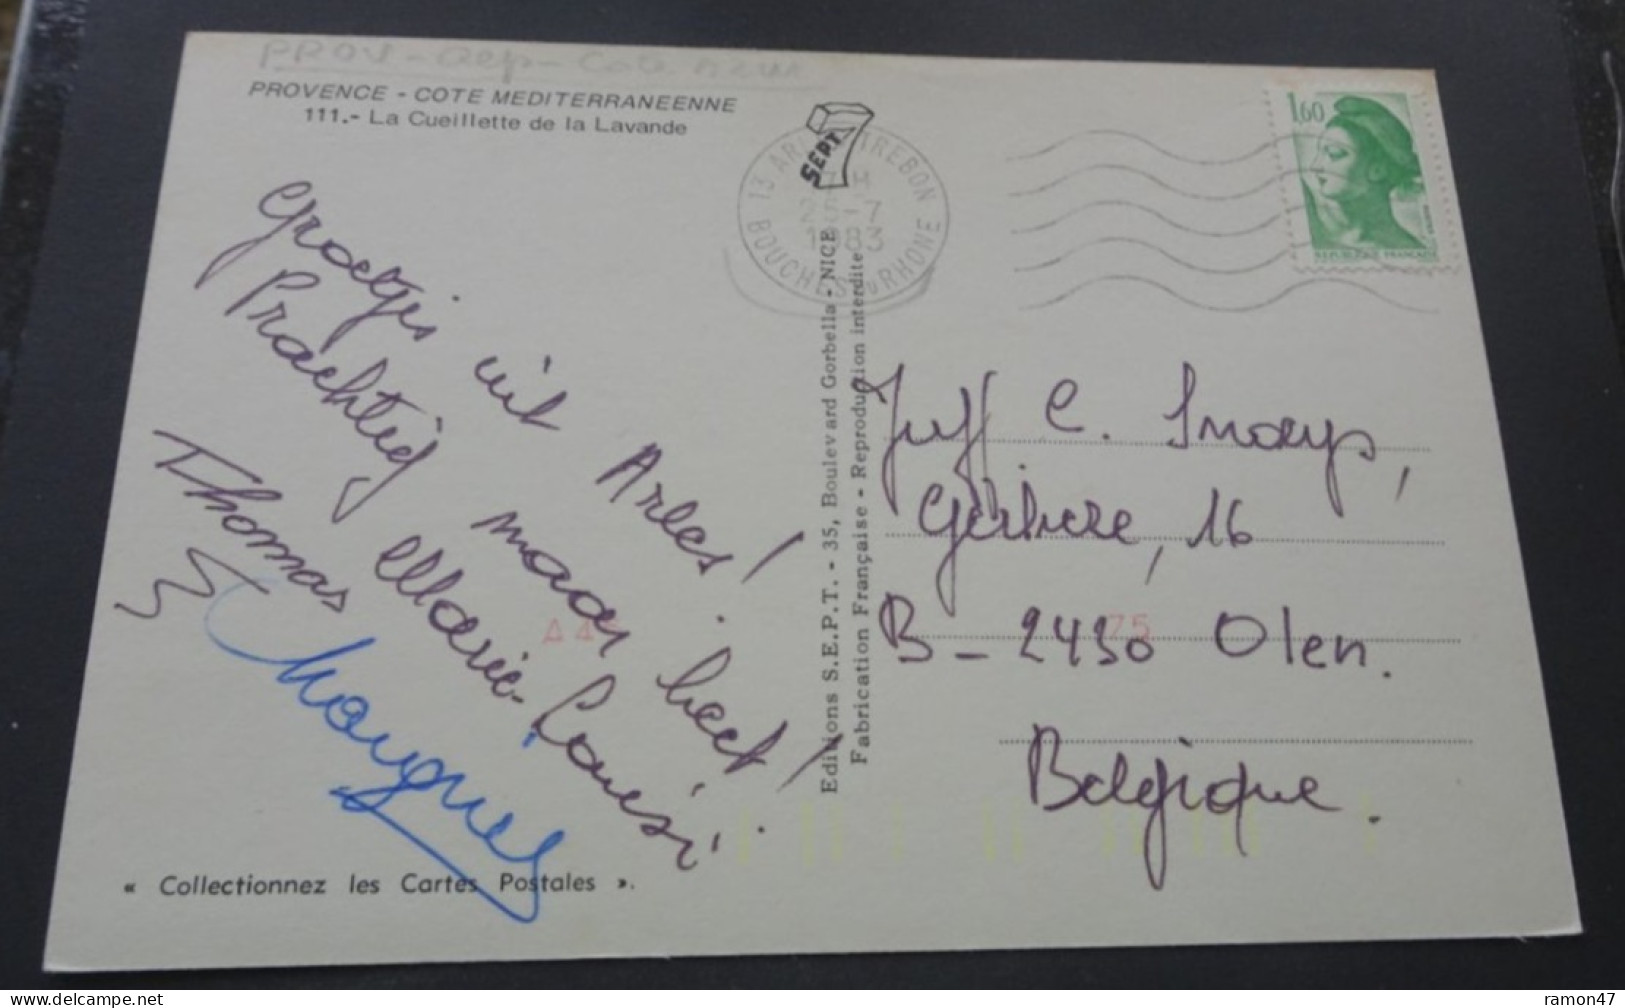 PROV - alp - Cote AZUR
PROVENCE - COTE MEDITERRANEENNE
111.- La Cueillette de la Lavande
Groetjes uit Arles!
Prachtig maar heet!
Marie-Louise
Thomas
« Collectionnez les Cartes Postales ».
SEPT
13 ARLES TREBON
7
1983
BOUCHES DU RHONE
Editions S.E.P.T. - 35, Boulevard Gorbella - NICE
Fabrication Française - Reproduction interdite
1,60
REPUBLIQUE FRANÇAISE
Juff C.
, 16
B - 2430 Olen.
Belgique.
75
delcampe.net
ramon47